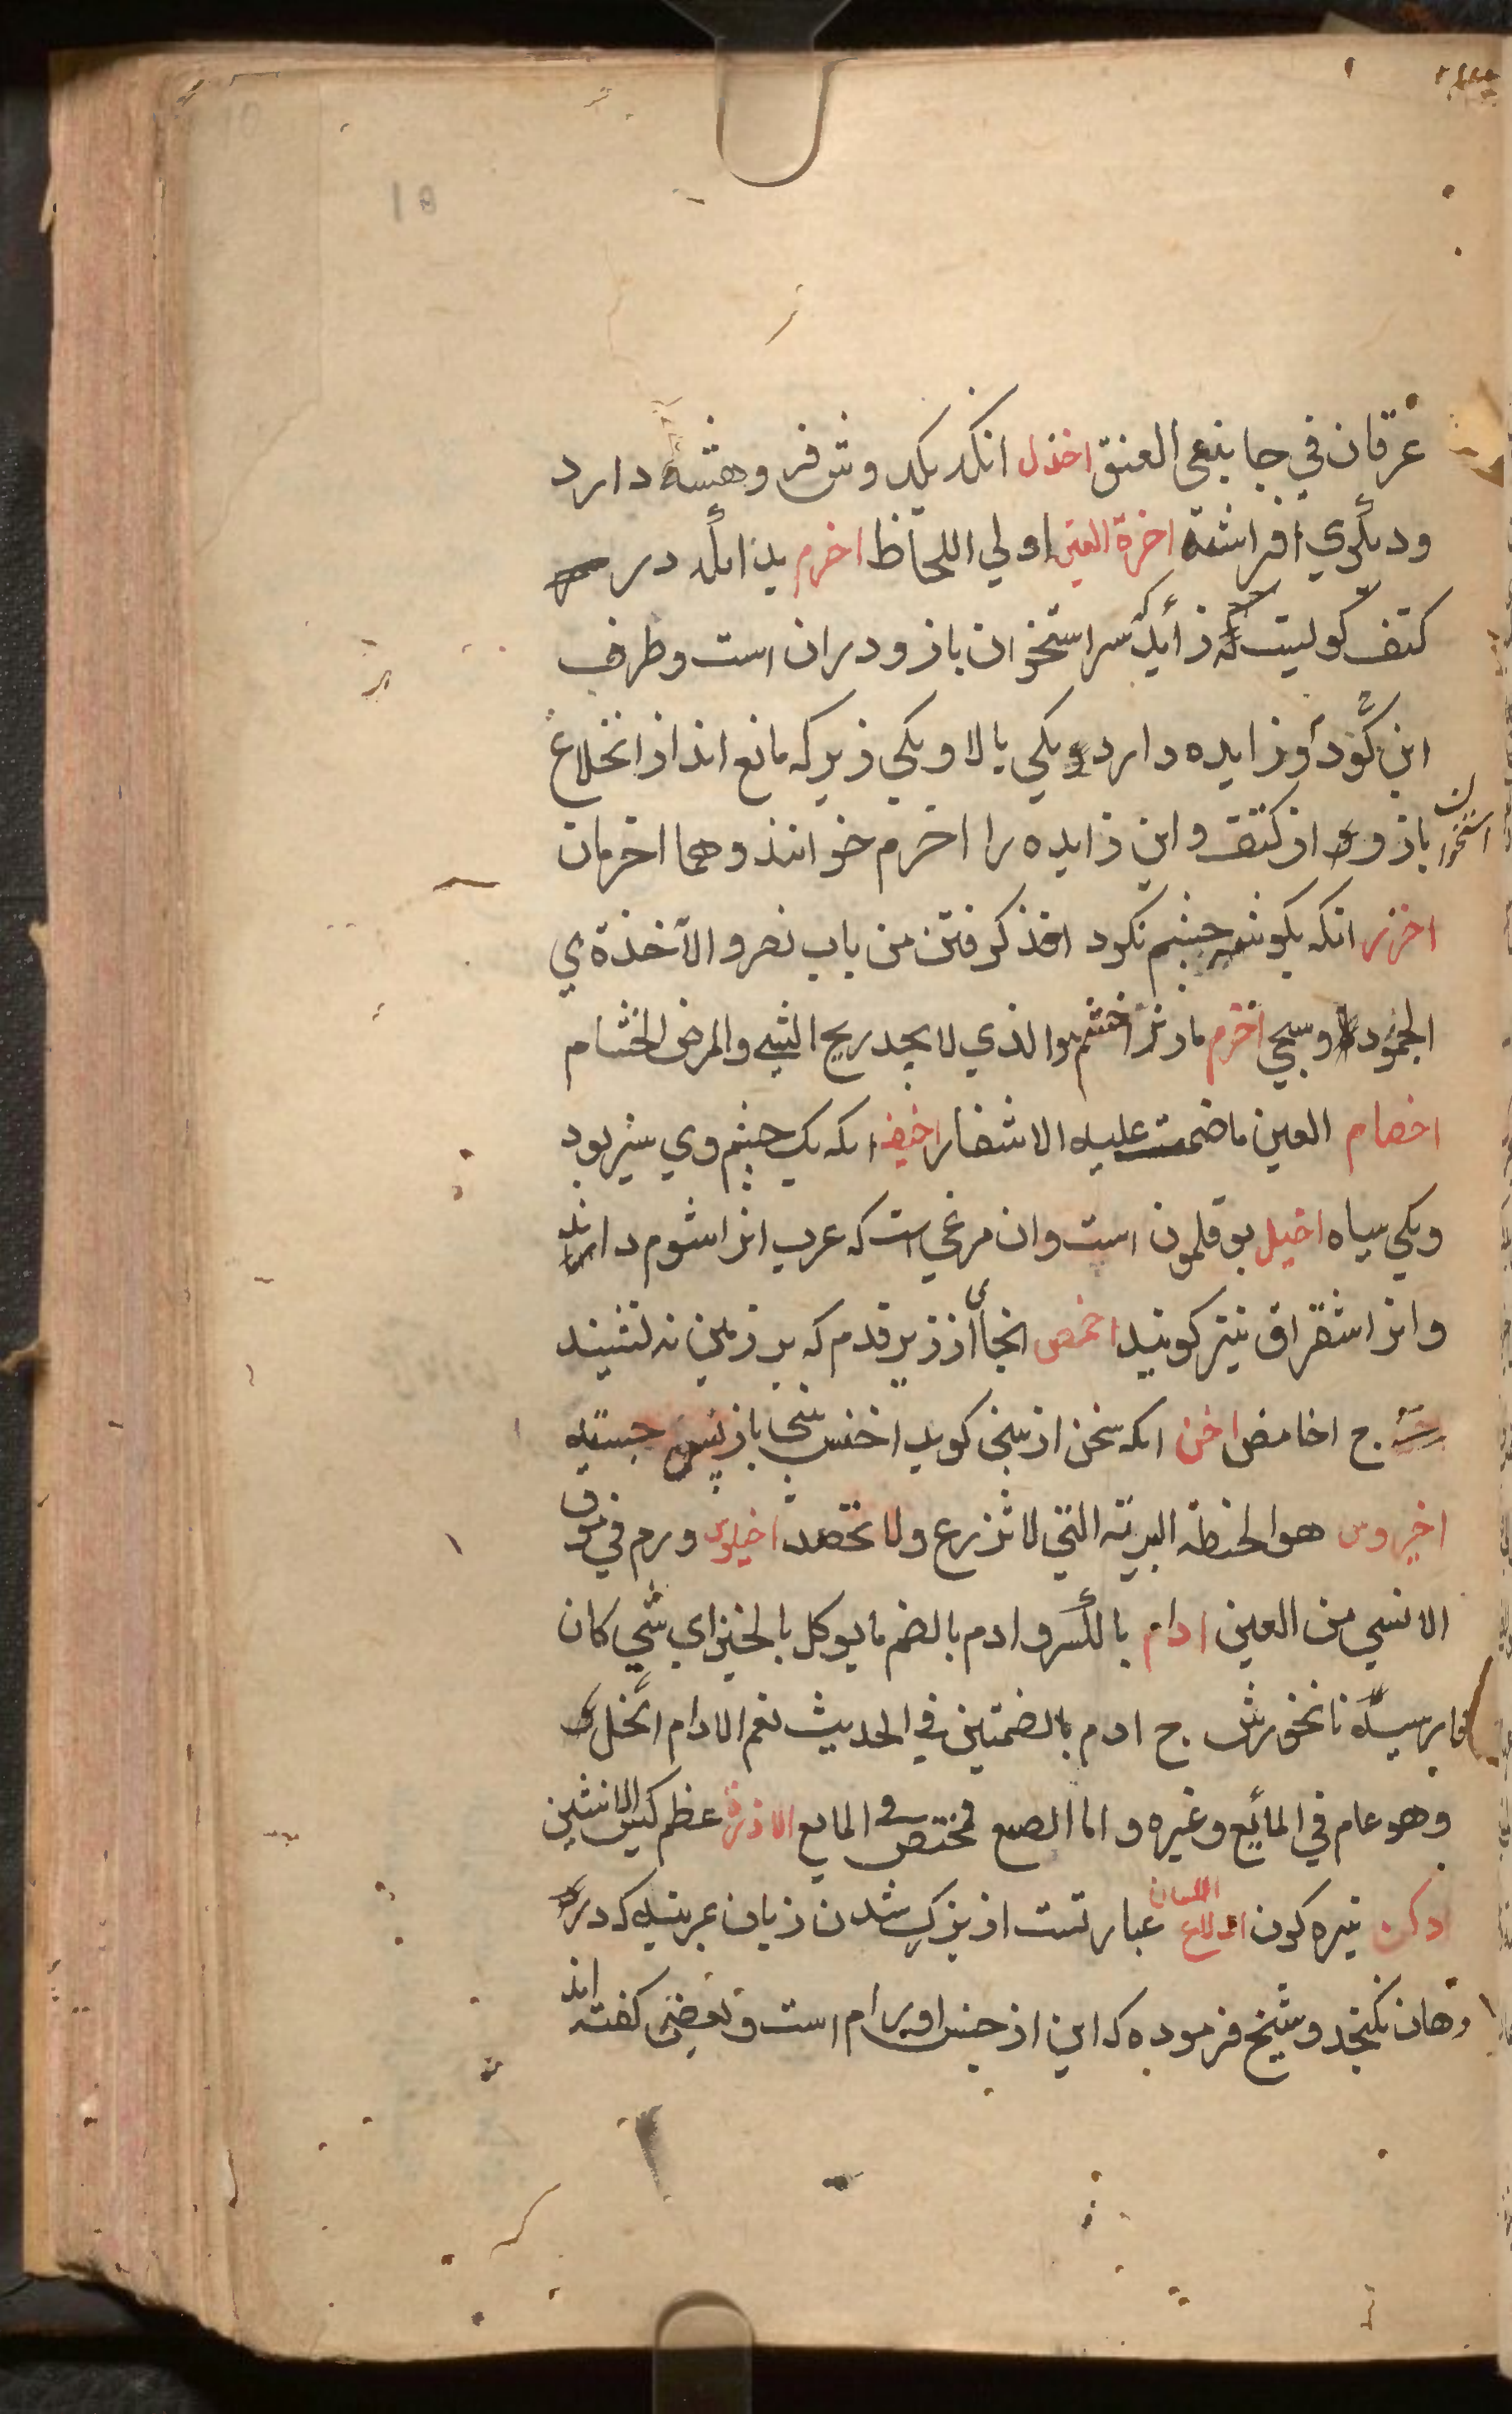 عرقان في جانبي العنق اخذل انکه یکدوش فر وهشته دارد
ودیکري افراشته اخرة العین اولي اللحاظ اخرم بدانکه در
کتف کولیست که زائده سر استخوان بازو دران است وطرف
این کود دو زایده دارد یکي بالا ویکي زیر که مانع اند از انخلاع
استخوان بازو از کتف واین زایده را اخرم خوانند وهما اخرمان
اخزر انکه بکوشه چشم نکرد اخذ کرفتن من باب نصر والآخذة ي
الجمود وسیجي اخرم مارنر اخشم هو الذي لا یجد ریح الشي والمرض الخشام
اخصام العین ما ضمت علیه الاشفار اخیف انکه یک چشم وي شیر بود
ویکي سیاه اخیل بوقلمون است وان مرغي است که عرب انرا شوم دارند
وانرا شقراق نیز کویند اخمص انجا از زیر قدم که بر زمین نه نشیند
ج اخامص اخن انکه سخن از بیني کوید اخنس بیني باز پس جسته
اخیروس هو الحنطة البریة التي لا تزرع ولا تحصد اخیلوس ورم في موق
الانسي من العین ادام بالکسر وادم بالضم ما یوکل بالخبز اي شي کان
فارسیه نانخورش ج ادم بالضمتین في الحدیث نعم الادام الخل
وهو عام في المائع وغیره واما الصبغ فمختص في المایع الادرة عظم کیس الانثیین
ادکن تیره کون ادلاع اللسان عبارتست از بزرک شدن زبان بمرتبه که در
دهان نکنجد وشیخ فرموده که این از جنس اورام است وبعضي کفته اند